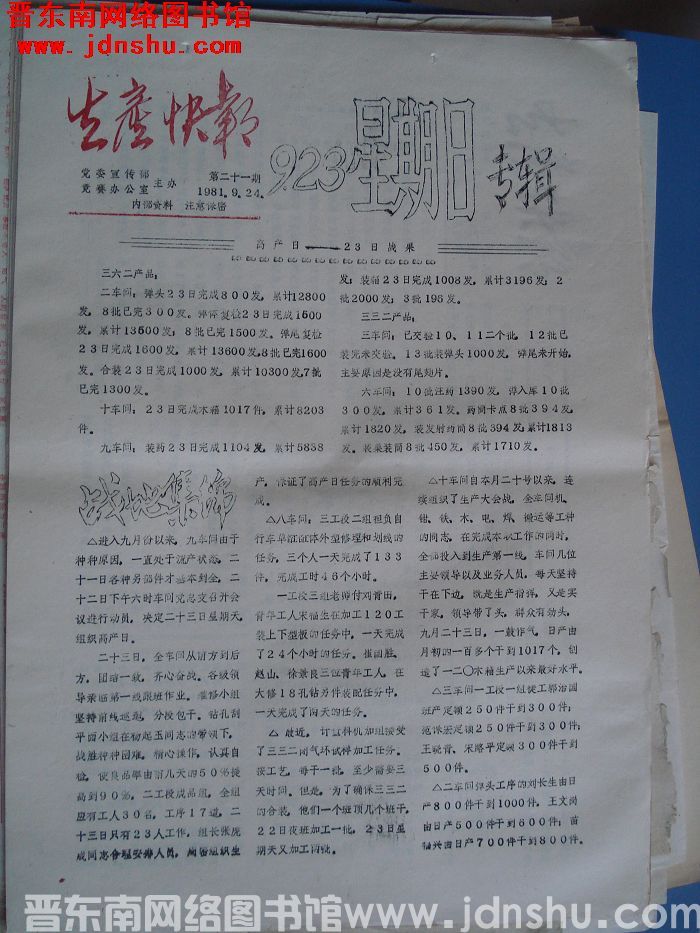 晋东南网络图书馆
www.jdnshu.com
生产快报
党委宣传部
竞赛办公室 主办
第二十一期
1981.9.24.
内部资料 注意保密
923星期日
专辑
高产日——23日战果
三六二产品：
二车间：弹头23日完成800发，累计12800
发，8批已完300发。弹体复检23日完成1500
发，累计13500发；8批已完1500发。弹尾复检
23日完成1600发，累计13600发，8批已完1600
发。合装23日完成1000发，累计10300发，7批
已完1300发。
十车间：23日完成木箱1017件，累计8203
件。
九车间：装药23日完成1104发，累计5838
发；装箱23日完成1008发，累计3196发；2
批2000发；3批196发。
三三二产品：
三车间：已交验10、11二个批，12批已
装完未交验。13批装弹头1000发，弹尾未开始，
主要原因是没有尾翅片。
六车间：10批注药1390发，弹入库10批
300发，累计361发。药筒卡点8批394发，
累计1820发。装发射药筒8批394发，累计1813
发。装巢装筒8批450发，累计1710发。
战地集锦
△进入九月份以来，九车间由于
种种原因，一直处于流产状态，二
十一日各种另部件才基本到全，二
十二日下午六时车间党总支召开会
议进行动员，决定二十三日星期天
组织高产日。
二十三日，全车间从前方到后
方，团结一致，齐心奋战。各级领
导亲临第一线跟班作业。维修小组
坚持前线巡迴，分段包干。钻孔刮
平面小组在杨起玉同志的带领下，
战胜种种困难，精心操作，认真自
检，使良品率由前几天的50％提
高到90％，二工段成品组，全组
应有工人30名，工序17道，二
十三日只有23人工作，组长张庞
成同志合理安排人员，周密组织生
产，保证了高产日任务的顺利完
成。
△八车间：三工段二组担负自
行车单缸缸体外型修理和划线的
任务，三个人一天完成了133
件，完成工时46个小时。
一工段三组老师付刘晋田，
青年工人宋福生在加工120工
装上下型板的任务中，一天完成
了24个小时的任务。崔国胜、
赵山、徐景良三位青年工人，在
大修18孔钻另件装配任务中，
一天完成了两天的任务。
△最近，计量科机加组接受
了三三二闭气环试样加工任务。
按工艺，每干一批，至少需要三
天时间。但是，为了确保三三二
的合装，他们一个班顶几个班干，
22日夜班加工一批，23日星
期天又加工两批。
△十车间自本月二十号以来，连
续组织了生产大会战，全车间机、
钳、铁、木、电、焊、搬运等工种
的同志，在完成本职工作的同时，
全部投入到生产第一线，车间几位
主要领导以及业务人员，每天坚持
干在下边，既是生产指挥，又是实
干家，领导带了头，群众有劲头，
九月二十三日，一鼓作气，日产由
月初的一百多个干到1017个，创
造了一二〇木箱生产以来最好水平。
△三车间一工段一组徒工郭治国
班产定额250件干到300件；
范沛宏定额250件干到300件；
王晓青、宋路平定额300件干到
500件。
△二车间弹头工序的刘长生由日
产800件干到1000件，王文岗
由日产500件干到600件；苗
福兴由日产700件干到800件。
晋东南网络图书馆www.jdnshu.com